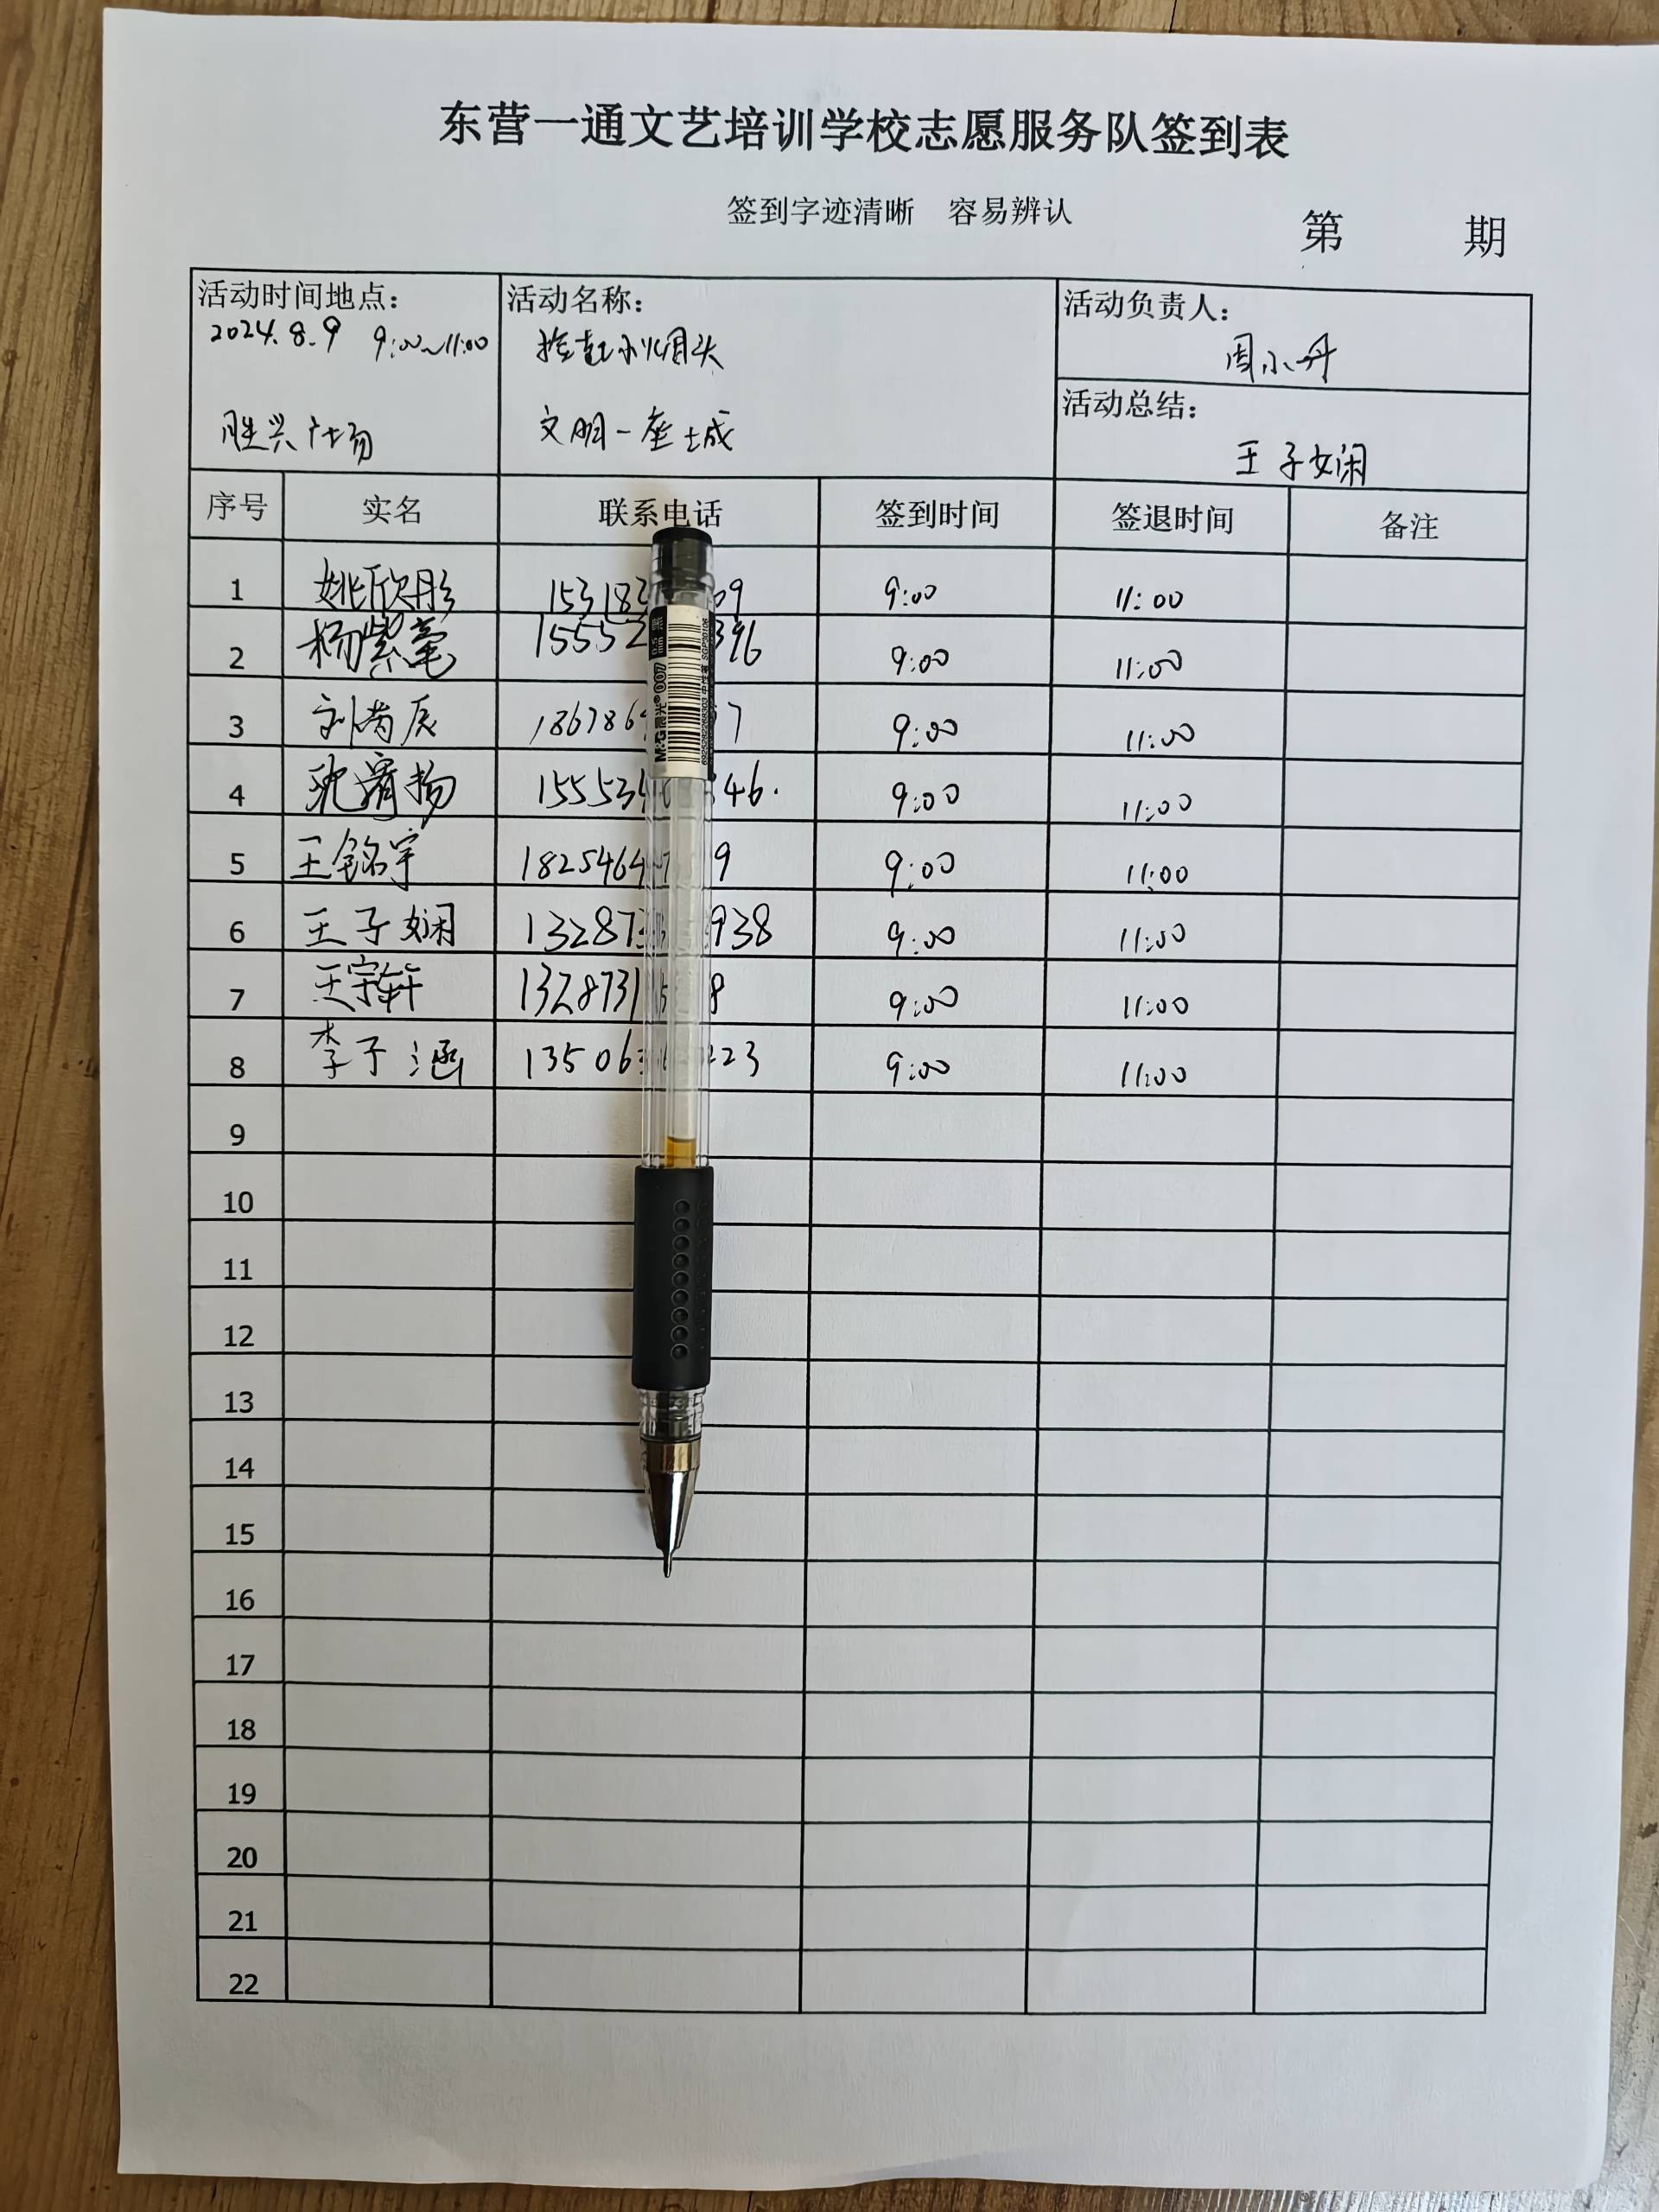 东营一通文艺培训学校志愿服务队签到表
签到字迹清晰 容易辨认
第 期
活动时间地点： 活动名称： 活动负责人：
2024.8.9 9:00~11:00 捡起小烟头 周小丹
活动总结：
胜兴广场 文明一座城 王子娴
序号 实名 联系电话 签到时间 签退时间 备注
1 姚欣彤 15318 09 9:00 11:00
2 杨紫毫 15552 396 9:00 11:00
3 刘芮辰 186786 7 9:00 11:00
4 155534 46. 9:00 11:00
5 王铭宇 1825464 9 9:00 11:00
6 王子娴 13287 938 9:00 11:00
7 王宇轩 1328731 8 9:00 11:00
8 李子涵 13506 23 9:00 11:00
9
10
11
12
13
14
15
16
17
18
19
20
21
22
M&G晨光 007